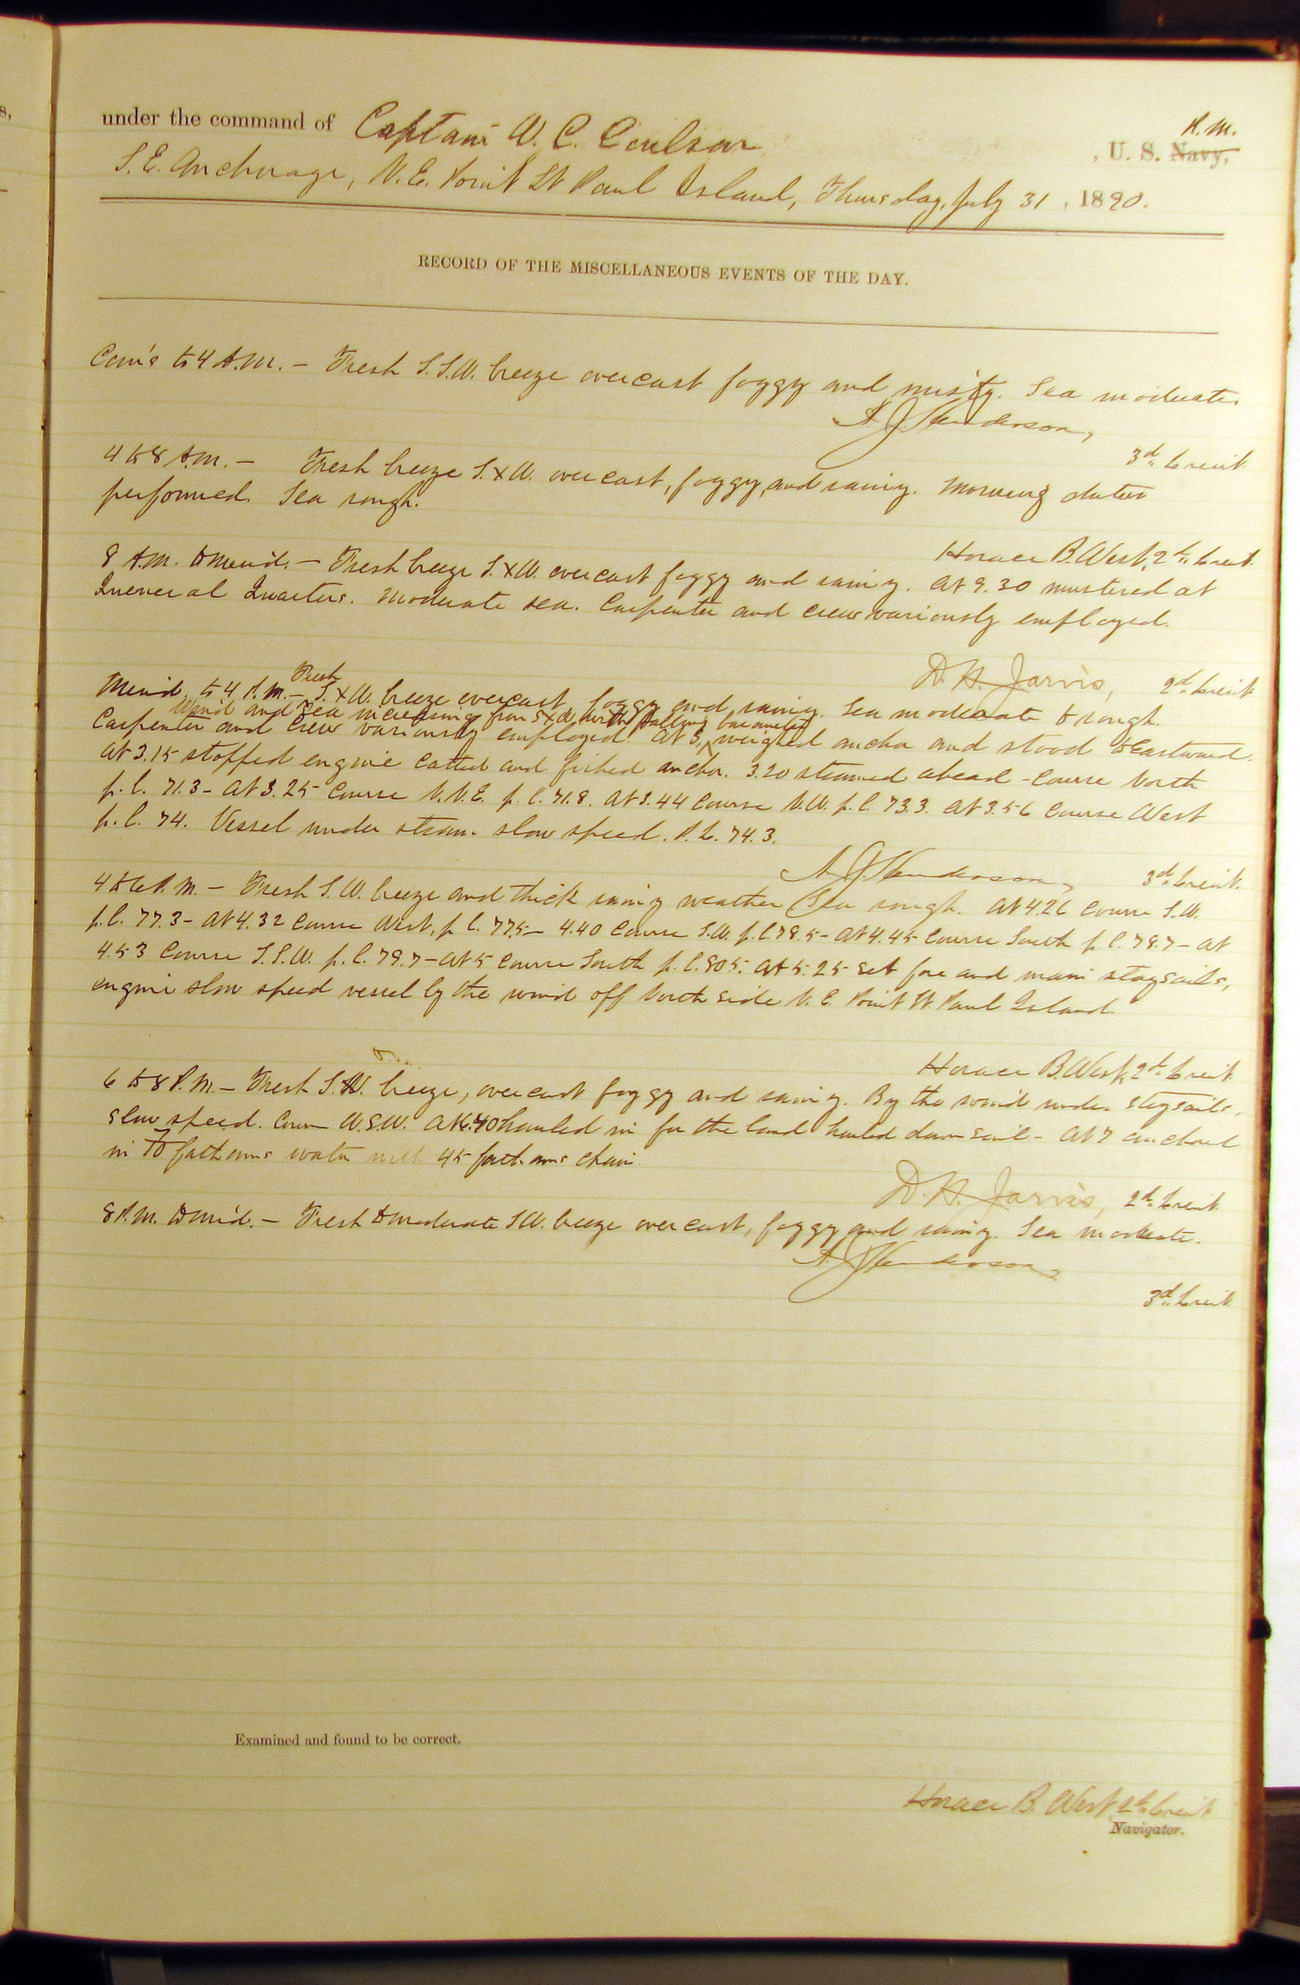 s,
under the command of Captain W. C. Coulson R. M.
, U. S. Navy,
S. E. Anchorage, N. E. Point St Paul Island, Thursday, July 31, 1890.
RECORD OF THE MISCELLANEOUS EVENTS OF THE DAY.
Com's to 4 A.M. — Fresh S.S.W. breeze overcast foggy and misty. Sea moderate.
A J Henderson,
3d Lieut
4 to 8 A.M. — Fresh breeze S. x W. overcast, foggy, and rainy. Morning duties
performed. Sea rough.
Horace B. West, 2d Lieut.
8 A.M. to Merid. — Fresh breeze S. x W. overcast foggy and rainy. At 9.30 mustered at
General Quarters. Moderate sea. Carpenter and crew variously employed.
D. H. Jarvis, 2d Lieut
Fresh
Merid. to 4 P.M. — S. x W. breeze overcast foggy and rainy. Sea moderate to rough.
Wind and sea increasing from S x W with falling barometer
Carpenter and crew variously employed. At 3, weighed anchor and stood to Eastward.
At 3.15 stopped engine catted and fished anchor. 3.20 steamed ahead - Course North
p. l. 71.3 - At 3.25 Course N.N.E. p. l. 71.8. At 3.44 Course N.W. p. l. 73.3. At 3.56 Course West
p. l. 74. Vessel under steam slow speed. P. L. 74.3.
A J Henderson, 3d Lieut.
4 to 6 P.M. — Fresh S.W. breeze and thick rainy weather Sea rough. At 4.26 Course S.W.
p. l. 77.3 - At 4.32 Course West, p l. 77.5 - 4.40 Course S.W. p. l. 78.5 - At 4.45 Course South p. l. 78.7 - At
4.53 Course S.S.W. p. l. 79.7 - At 5 Course South p. l. 80.5. At 5.25 set fore and main staysails,
engine slow speed vessel by the wind off North side N. E. Point St Paul Island.
Horace B. West, 2d Lieut.
6 to 8 P.M. — Fresh S.W. breeze, overcast foggy and rainy. By the wind under staysails,
slow speed. Course W.S.W. At 6.40 hauled in for the land hauled down sail - At 7 anchored
in 10 fathoms water with 45 fathoms chain
D. H. Jarvis, 2d Lieut
8 P.M. to Mid. — Fresh to moderate S.W. breeze overcast, foggy and rainy. Sea moderate.
A J Henderson,
3d Lieut
Examined and found to be correct.
Horace B. West, 2d Lieut
Navigator.